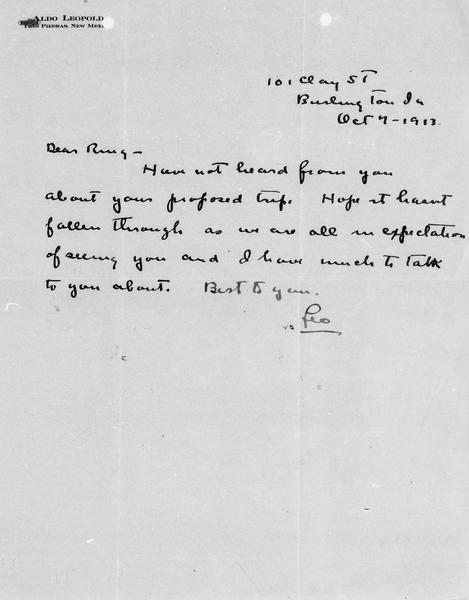 ALDO LEOPOLD
TRES PIEDRAS, NEW MEX.
101 Clay ST
Burlington Ia
Oct 7-1913.
Dear Ring-
Have not heard from you
about your proposed trip. Hope it hasnt
fallen through as we are all in expectation
of seeing you and I have much to talk
to you about. Best to you.
Leo